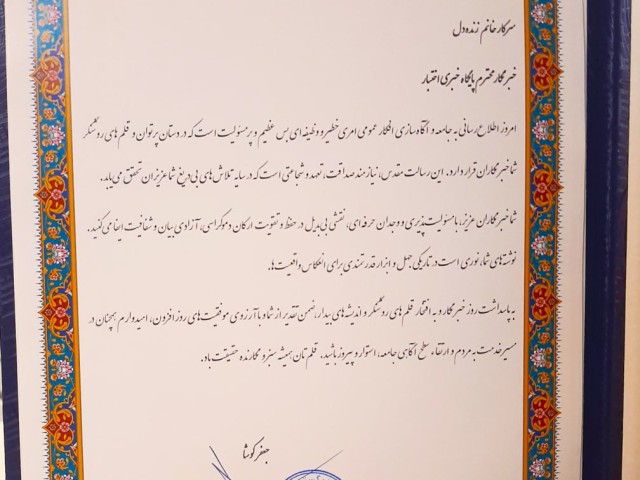 سرکار خانم زنده دل
خبرنگار محترم پایگاه خبری اختبار
امروز اطلاع رسانی به جامعه و آگاه سازی افکار عمومی امری خطیر و وظیفه ای بس عظیم و پرمسئولیت است که در دستان پرتوان و قلم های روشنگر
شما خبرنگاران قرار دارد. این رسالت مقدس، نیازمند صداقت، تعهد و شجاعتی است که در سایه تلاش های بی دریغ شما عزیزان تحقق می یابد.
شما خبرنگاران عزیز، با مسئولیت پذیری و وجدان حرفه ای، نقشی بی بدیل در حفظ و تقویت ارکان دموکراسی، آزادی بیان و شفافیت ایفا می کنید.
نوشته های شما، نوری است در تاریکی جهل و ابزار قدرتمندی برای انعکاس واقعیت ها.
به پاسداشت روز خبرنگار و به افتخار قلم های روشنگر و اندیشه های بیدار، ضمن تقدیر از شما و با آرزوی موفقیت های روزافزون، امیدوارم همچنان در
مسیر خدمت به مردم و ارتقاء سطح آگاهی جامعه، استوار و پیروز باشید. قلم تان همیشه سبز و نگارنده حقیقت باد.
جعفر کوشا